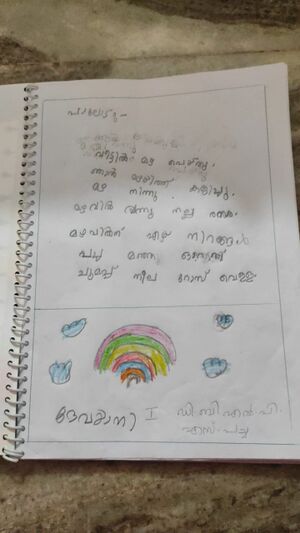 വീട്ടിൽ മഴ പെയ്തു.
ഞാൻ മഴയത്ത്
മഴ നിന്നു. കളിച്ചു.
മഴവിൽ വന്നു നല്ല രസം.
മഴവില്ലിന് ഏഴ് നിറങ്ങൾ
പച്ച മഞ്ഞ ഓറഞ്ച്
ചുമപ്പ് നീല റോസ് വെള്ള
ദേവകാനി I ഡി.ബി.എൽ.പി.
എസ്.പച്ച